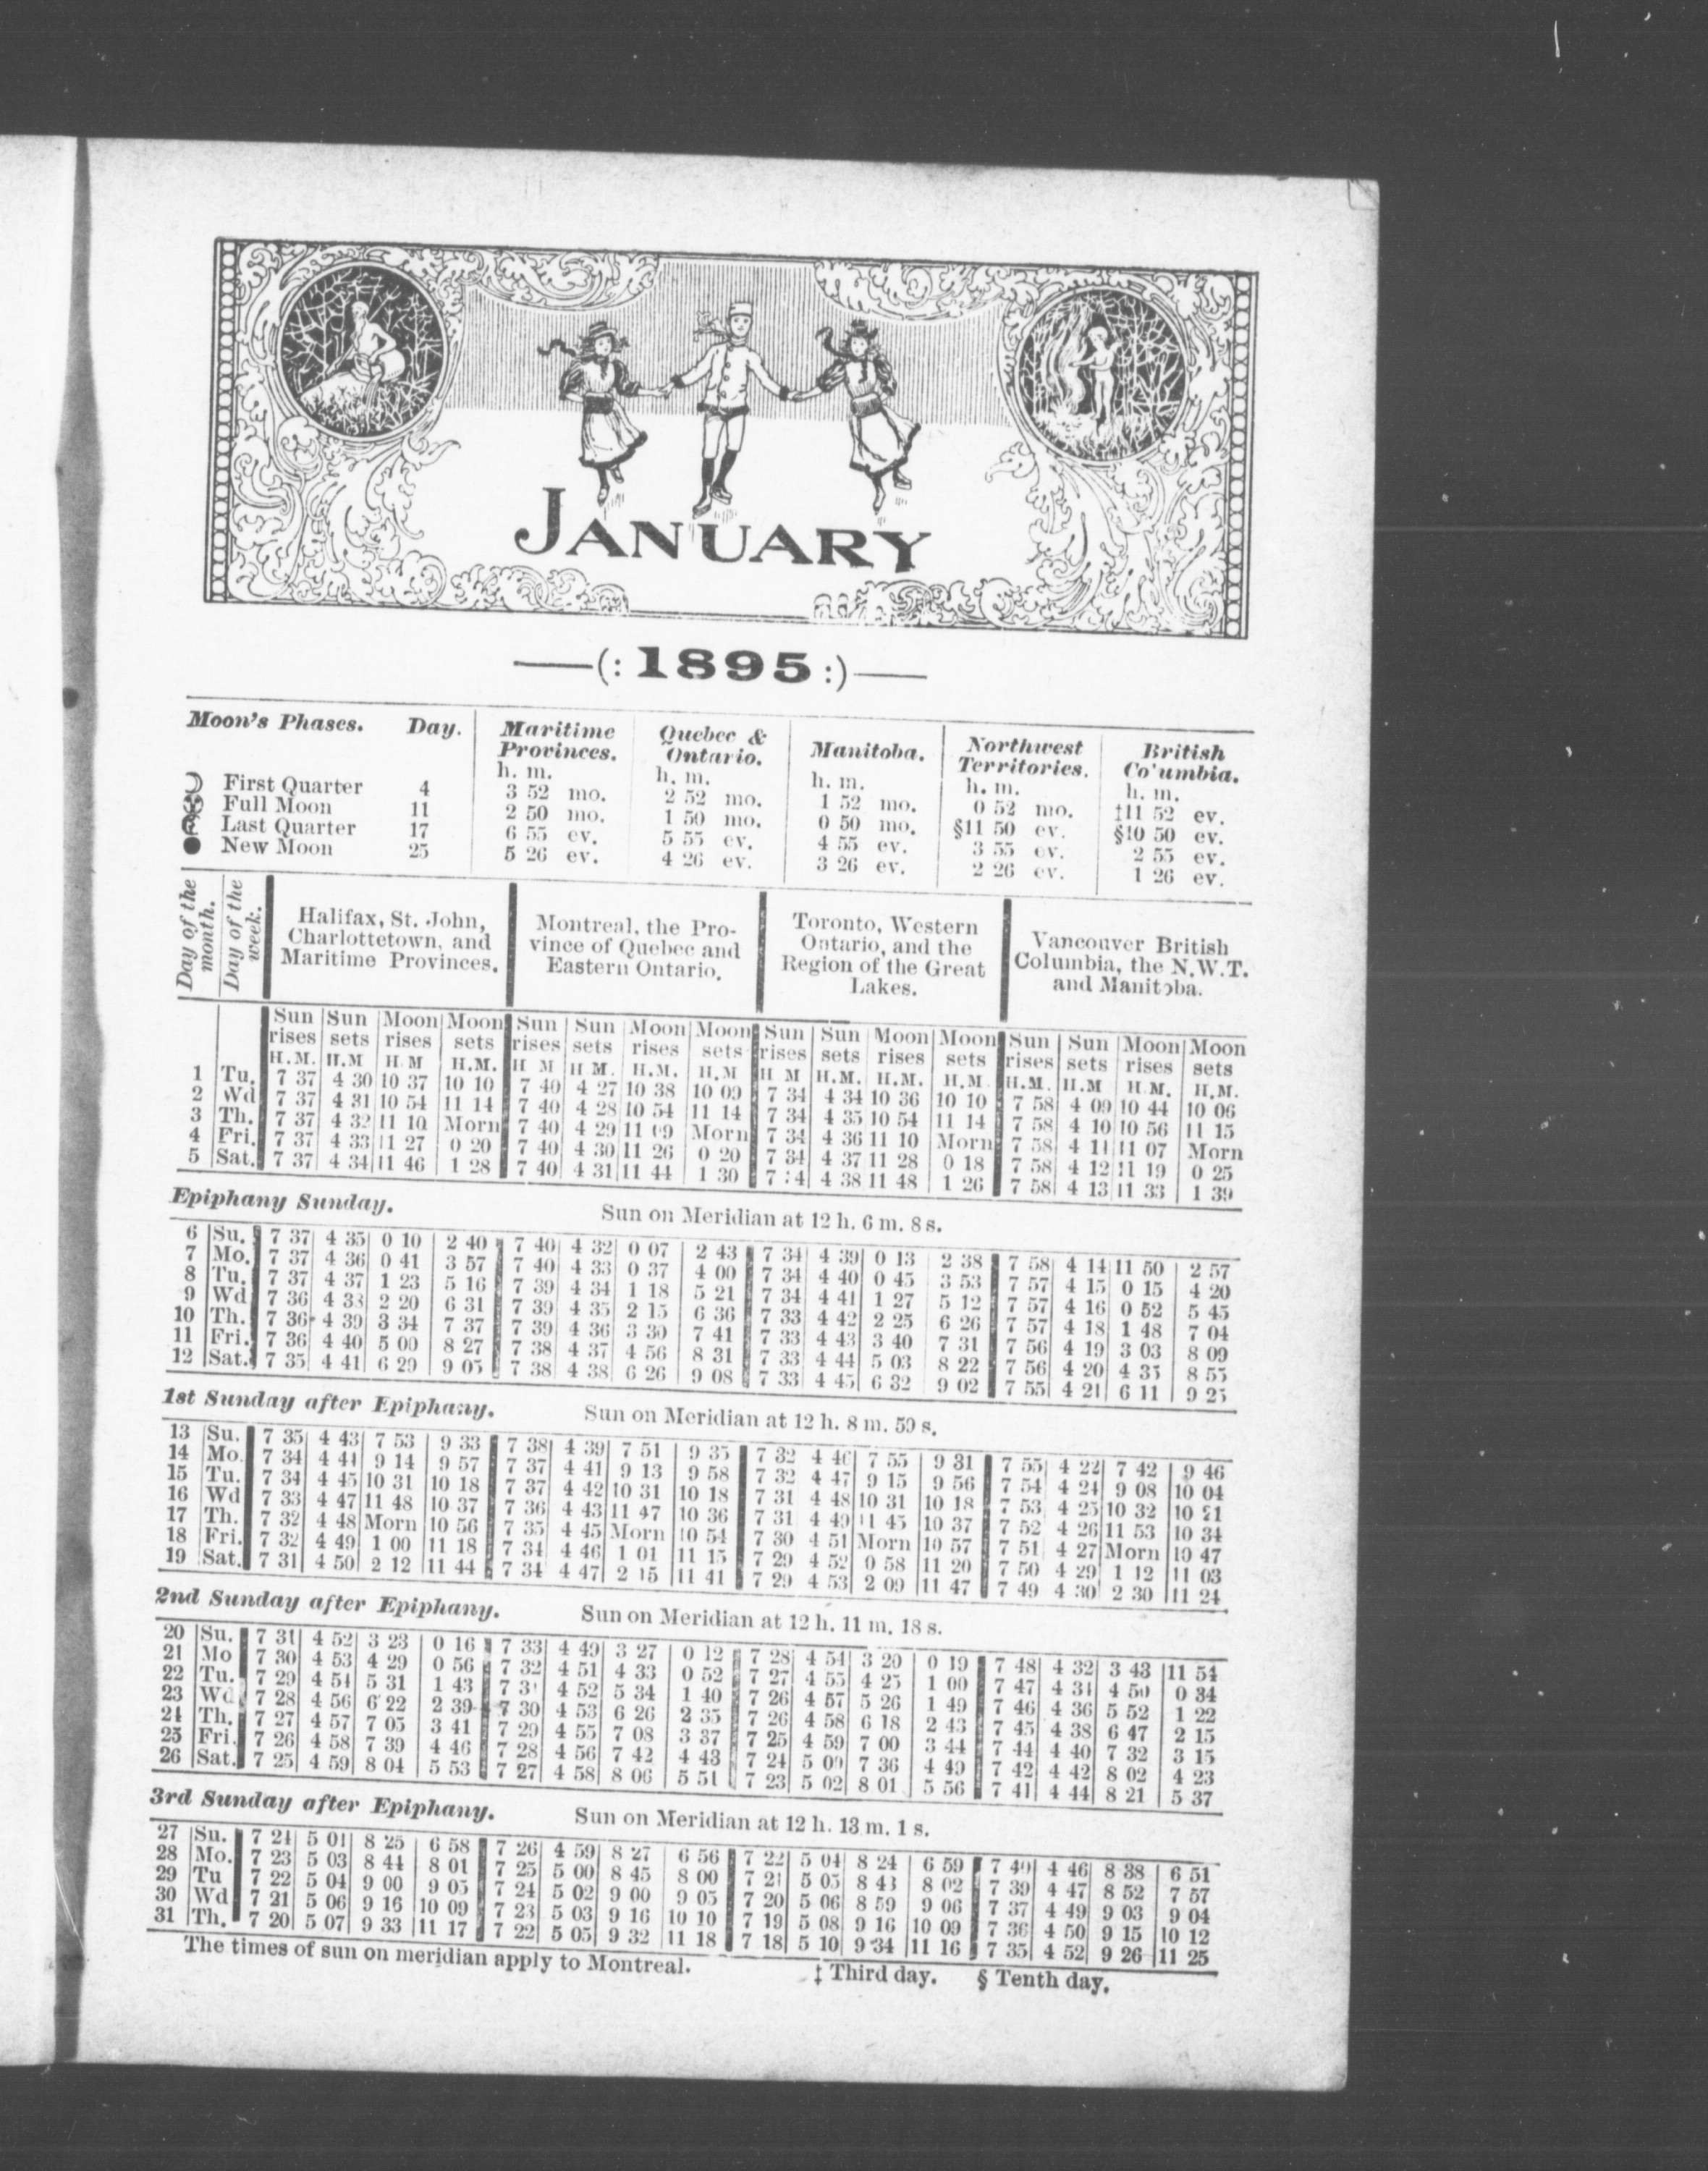 JANUARY
—(: 1895 :)—
Moon's Phases. Day. Maritime Provinces. Quebec & Ontario. Manitoba. Northwest Territories. British Co'umbia.
h. m. h. m. h. m. h. m. h. m.
First Quarter 4 3 52 mo. 2 52 mo. 1 52 mo. 0 52 mo. ‡11 52 ev.
Full Moon 11 2 50 mo. 1 50 mo. 0 50 mo. §11 50 ev. §10 50 ev.
Last Quarter 17 6 55 ev. 5 55 ev. 4 55 ev. 3 55 ev. 2 55 ev.
New Moon 25 5 26 ev. 4 26 ev. 3 26 ev. 2 26 ev. 1 26 ev.
Day of the month.
Day of the week.
Halifax, St. John, Charlottetown, and Maritime Provinces.
Montreal, the Province of Quebec and Eastern Ontario.
Toronto, Western Ontario, and the Region of the Great Lakes.
Vancouver British Columbia, the N.W.T. and Manitoba.
Sun rises Sun sets Moon rises Moon sets Sun rises Sun sets Moon rises Moon sets Sun rises Sun sets Moon rises Moon sets Sun rises Sun sets Moon rises Moon sets
H.M. H.M H.M H.M. H M H M. H.M. H.M H M H.M. H.M. H.M. H.M. H.M H.M. H.M.
1 Tu. 7 37 4 30 10 37 10 10 7 40 4 27 10 38 10 09 7 34 4 34 10 36 10 10 7 58 4 09 10 44 10 06
2 Wd 7 37 4 31 10 54 11 14 7 40 4 28 10 54 11 14 7 34 4 35 10 54 11 14 7 58 4 10 10 56 11 15
3 Th. 7 37 4 32 11 10 Morn 7 40 4 29 11 09 Morn 7 34 4 36 11 10 Morn 7 58 4 11 11 07 Morn
4 Fri. 7 37 4 33 11 27 0 20 7 40 4 30 11 26 0 20 7 34 4 37 11 28 0 18 7 58 4 12 11 19 0 25
5 Sat. 7 37 4 34 11 46 1 28 7 40 4 31 11 44 1 30 4 38 11 48 1 26 7 58 4 13 11 33 1 39
Epiphany Sunday. Sun on Meridian at 12 h. 6 m. 8 s.
6 Su. 7 37 4 35 0 10 2 40 7 40 4 32 0 07 2 43 7 34 4 39 0 13 2 38 7 58 4 14 11 50 2 57
7 Mo. 7 37 4 36 0 41 3 57 7 40 4 33 0 37 4 00 7 34 4 40 0 45 3 53 7 57 4 15 0 15 4 20
8 Tu. 7 37 4 37 1 23 5 16 7 39 4 34 1 18 5 21 7 34 4 41 1 27 5 12 7 57 4 16 0 52 5 45
9 Wd 7 36 4 38 2 20 6 31 7 39 4 35 2 15 6 36 7 33 4 42 2 25 6 26 7 57 4 18 1 48 7 04
10 Th. 7 36 4 39 3 34 7 37 7 39 4 36 3 30 7 41 7 33 4 43 3 40 7 31 7 56 4 19 3 03 8 09
11 Fri. 7 36 4 40 5 00 8 27 7 38 4 37 4 56 8 31 7 33 4 44 5 03 8 22 7 56 4 20 4 35 8 55
12 Sat. 7 35 4 41 6 29 9 05 7 38 4 38 6 26 9 08 7 33 4 45 6 32 9 02 7 55 4 21 6 11 9 25
1st Sunday after Epiphany. Sun on Meridian at 12 h. 8 m. 59 s.
13 Su. 7 35 4 43 7 53 9 33 7 38 4 39 7 51 9 35 7 32 4 46 7 55 9 31 7 55 4 22 7 42 9 46
14 Mo. 7 34 4 44 9 14 9 57 7 37 4 41 9 13 9 58 7 32 4 47 9 15 9 56 7 54 4 24 9 08 10 04
15 Tu. 7 34 4 45 10 31 10 18 7 37 4 42 10 31 10 18 7 31 4 48 10 31 10 18 7 53 4 25 10 32 10 21
16 Wd 7 33 4 47 11 48 10 37 7 36 4 43 11 47 10 36 7 31 4 49 11 45 10 37 7 52 4 26 11 53 10 34
17 Th. 7 32 4 48 Morn 10 56 7 35 4 45 Morn 10 54 7 30 4 51 Morn 10 57 7 51 4 27 Morn 10 47
18 Fri. 7 32 4 49 1 00 11 18 7 34 4 46 1 01 11 15 7 29 4 52 0 58 11 20 7 50 4 29 1 12 11 03
19 Sat. 7 31 4 50 2 12 11 44 7 34 4 47 2 15 11 41 7 29 4 53 2 09 11 47 7 49 4 30 2 30 11 24
2nd Sunday after Epiphany. Sun on Meridian at 12 h. 11 m. 18 s.
20 Su. 7 31 4 52 3 23 0 16 7 33 4 49 3 27 0 12 7 28 4 54 3 20 0 19 7 48 4 32 3 43 11 54
21 Mo 7 30 4 53 4 29 0 56 7 32 4 51 4 33 0 52 7 27 4 55 4 25 1 00 7 47 4 34 4 50 0 34
22 Tu. 7 29 4 54 5 31 1 43 7 31 4 52 5 34 1 40 7 26 4 57 5 26 1 49 7 46 4 36 5 52 1 22
23 Wd 7 28 4 56 6 22 2 39 7 30 4 53 6 26 2 35 7 26 4 58 6 18 2 43 7 45 4 38 6 47 2 15
24 Th. 7 27 4 57 7 05 3 41 7 29 4 55 7 08 3 37 7 25 4 59 7 00 3 44 7 44 4 40 7 32 3 15
25 Fri. 7 26 4 58 7 39 4 46 7 28 4 56 7 42 4 43 7 24 5 00 7 36 4 49 7 42 4 42 8 02 4 23
26 Sat. 7 25 4 59 8 04 5 53 7 27 4 58 8 06 5 51 7 23 5 02 8 01 5 56 7 41 4 44 8 21 5 37
3rd Sunday after Epiphany. Sun on Meridian at 12 h. 13 m. 1 s.
27 Su. 7 24 5 01 8 25 6 58 7 26 4 59 8 27 6 56 7 22 5 04 8 24 6 59 7 40 4 46 8 38 6 51
28 Mo. 7 23 5 03 8 44 8 01 7 25 5 00 8 45 8 00 7 21 5 05 8 43 8 02 7 39 4 47 8 52 7 57
29 Tu 7 22 5 04 9 00 9 05 7 24 5 02 9 00 9 05 7 20 5 06 8 59 9 06 7 37 4 49 9 03 9 04
30 Wd 7 21 5 06 9 16 10 09 7 23 5 03 9 16 10 10 7 19 5 08 9 16 10 09 7 36 4 50 9 15 10 12
31 Th. 7 20 5 07 9 33 11 17 7 22 5 05 9 32 11 18 7 18 5 10 9 34 11 16 7 35 4 52 9 26 11 25
The times of sun on meridian apply to Montreal. ‡ Third day. § Tenth day.